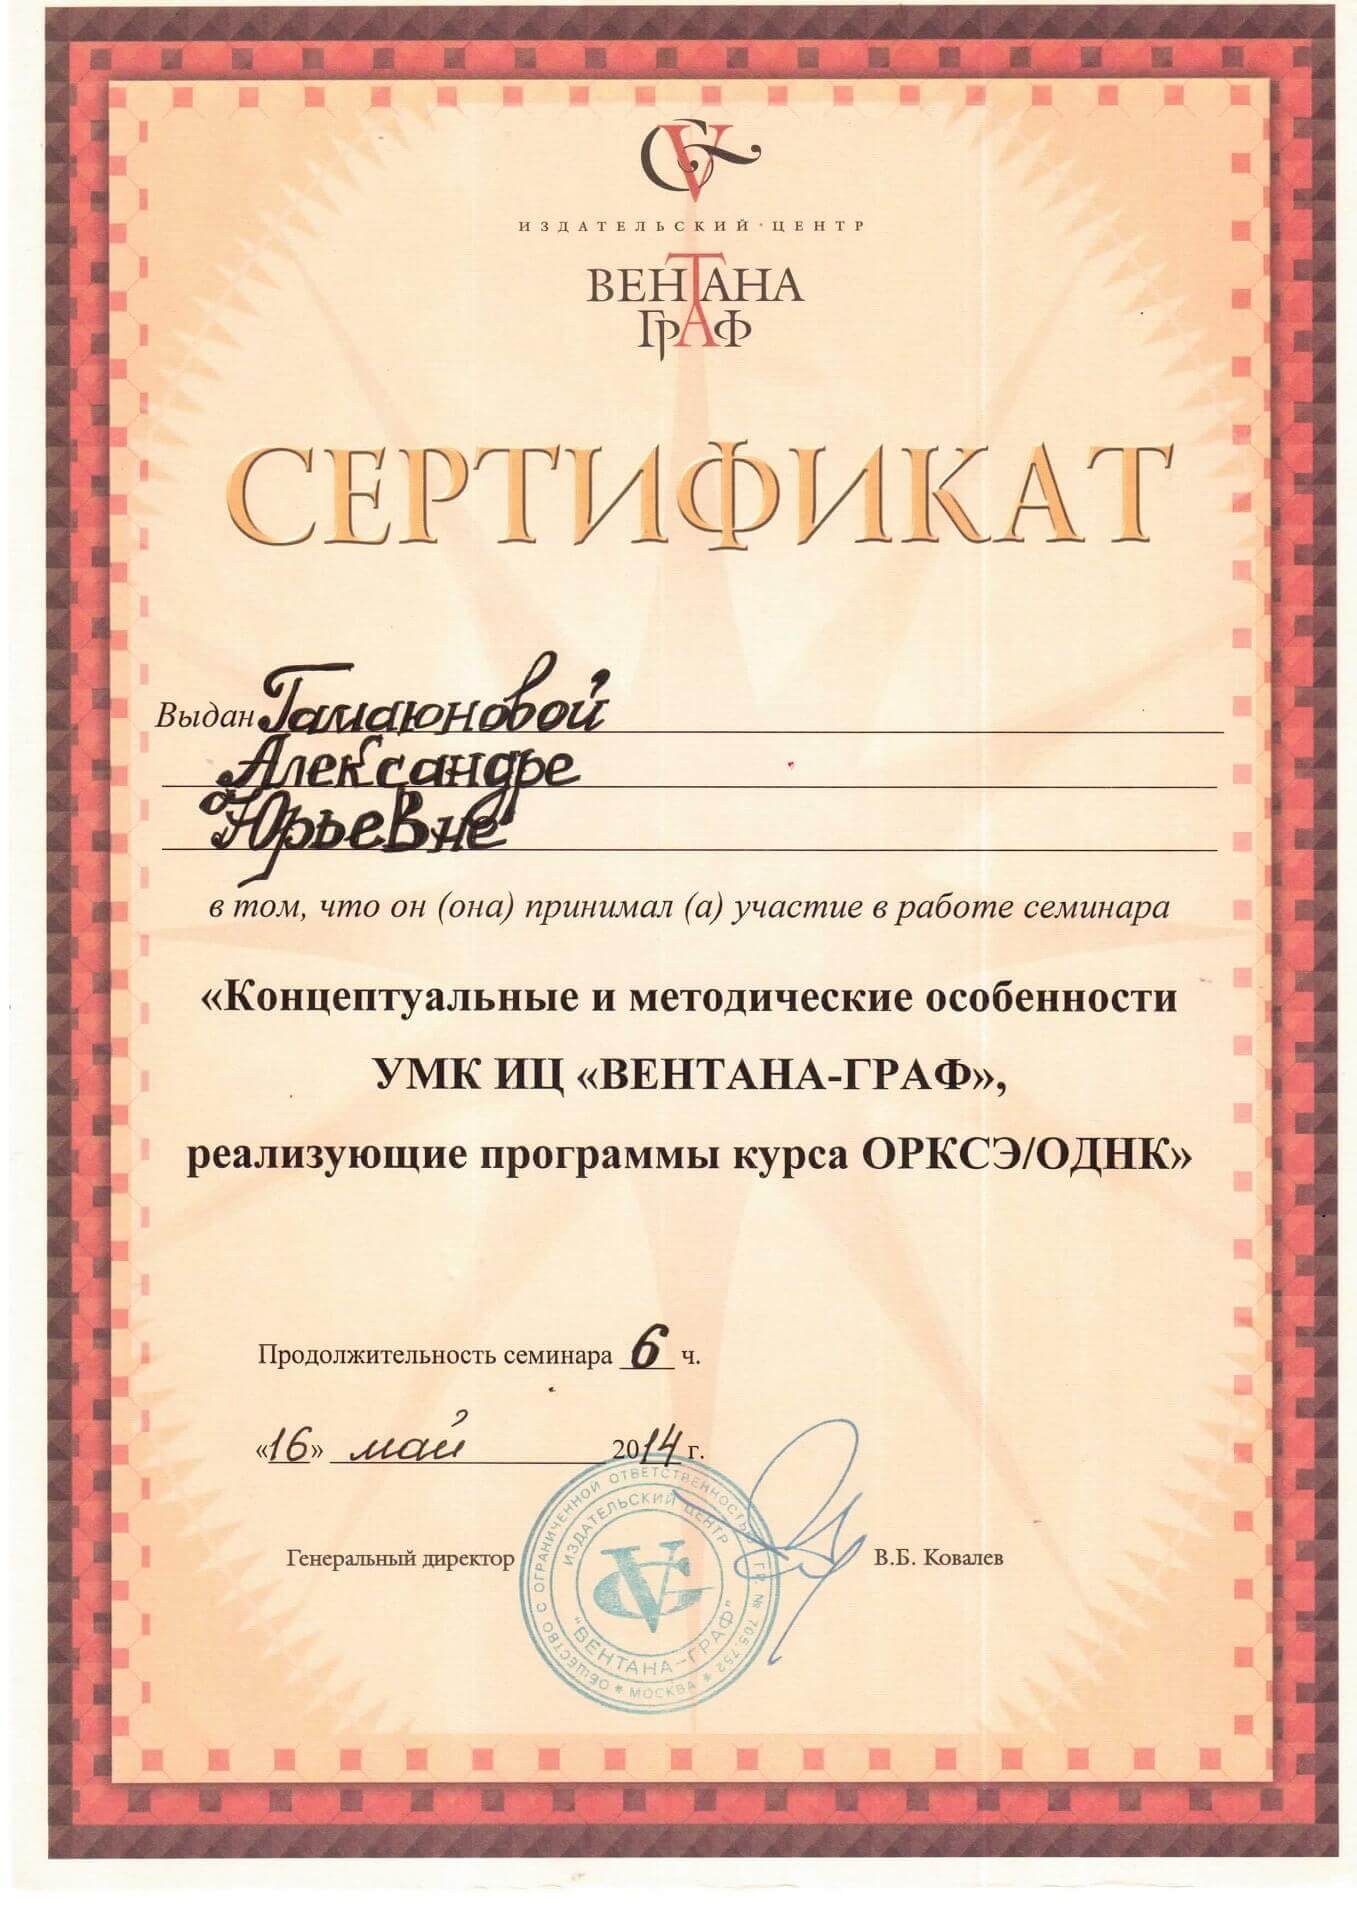 ИЗДАТЕЛЬСКИЙ·ЦЕНТР
ВЕНТАНА
ГРАФ
СЕРТИФИКАТ
Выдан Гамаюновой
Александре
Юрьевне
в том, что он (она) принимал (а) участие в работе семинара
«Концептуальные и методические особенности
УМК ИЦ «ВЕНТАНА-ГРАФ»,
реализующие программы курса ОРКСЭ/ОДНК»
Продолжительность семинара 6 ч.
«16» май 2014 г.
Генеральный директор В.Б. Ковалев
ОБЩЕСТВО С ОГРАНИЧЕННОЙ ОТВЕТСТВЕННОСТЬЮ ГР. № 705.752 * МОСКВА *
ИЗДАТЕЛЬСКИЙ ЦЕНТР
"ВЕНТАНА-ГРАФ"